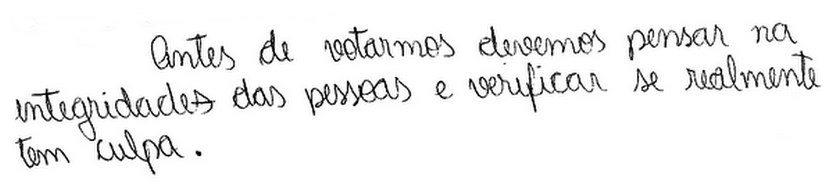 Antes de votarmos devemos pensar na
integridades das pessoas e verificar se realmente
tem culpa.